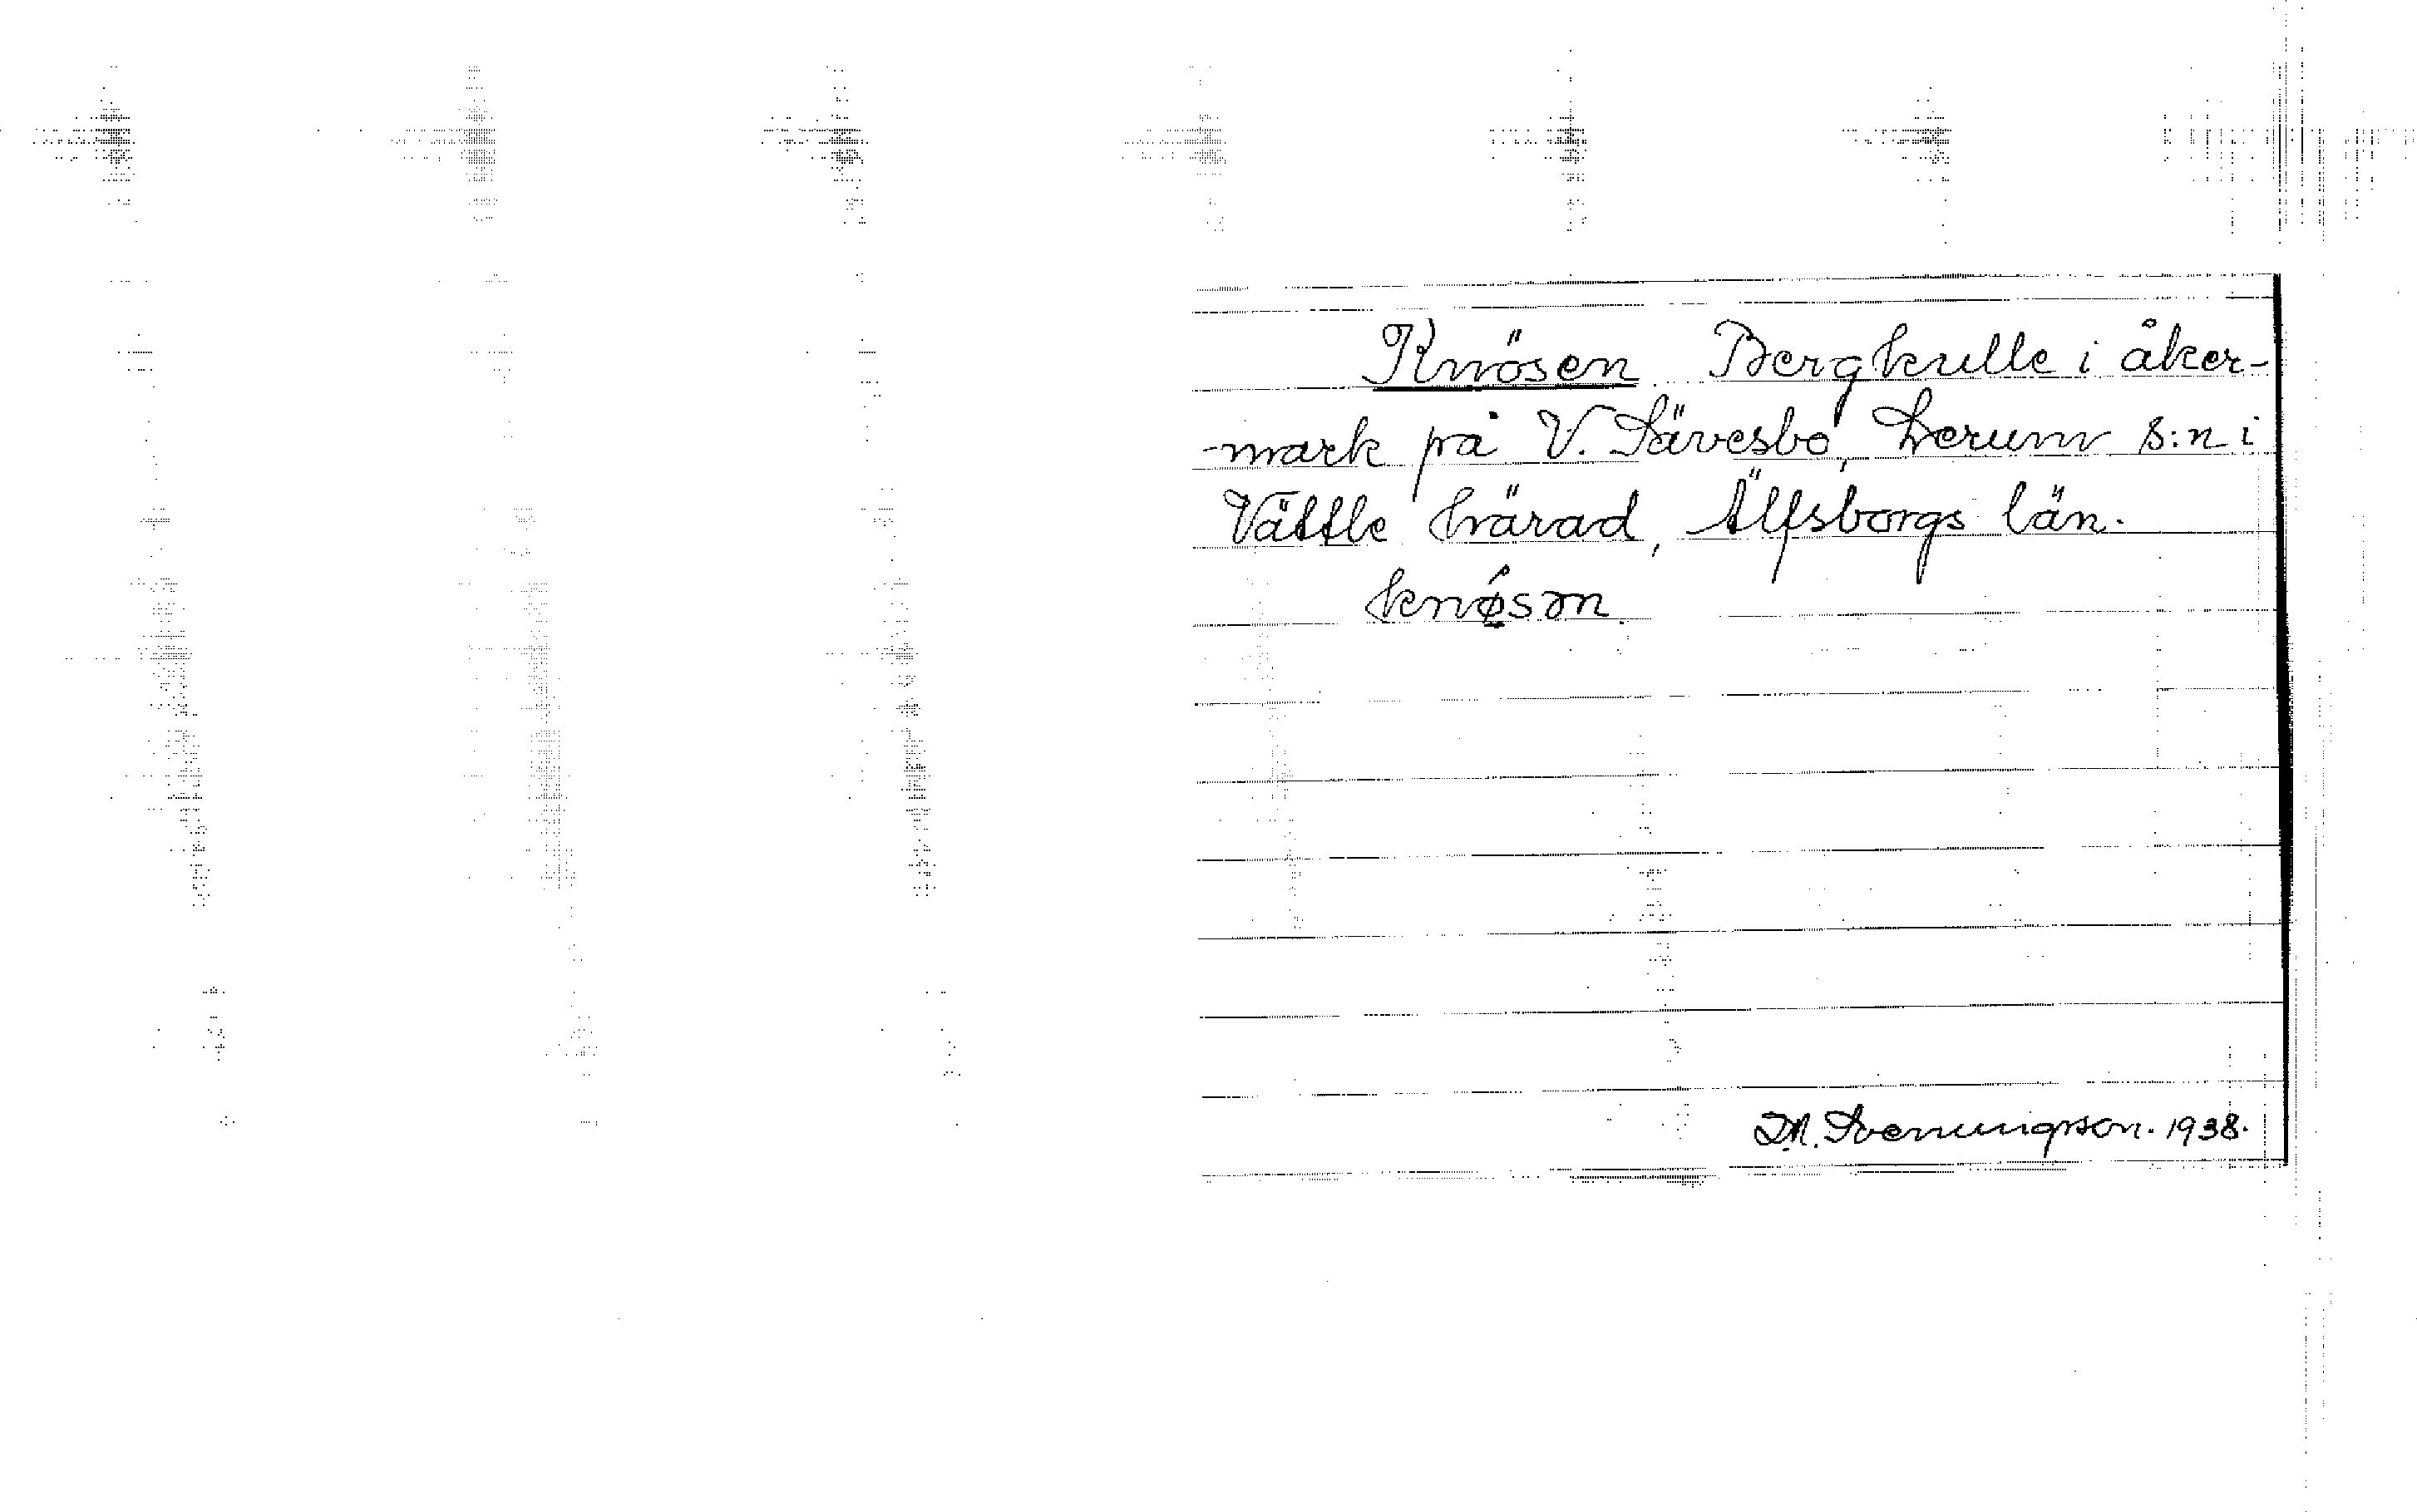 Knösen Bergkulle i åker-
-mark på V. Sävesbo, Lerum s:n i
Vättle härad, Älfsborgs län.
knǿsøn
D.N. Svenningsson. 1938.